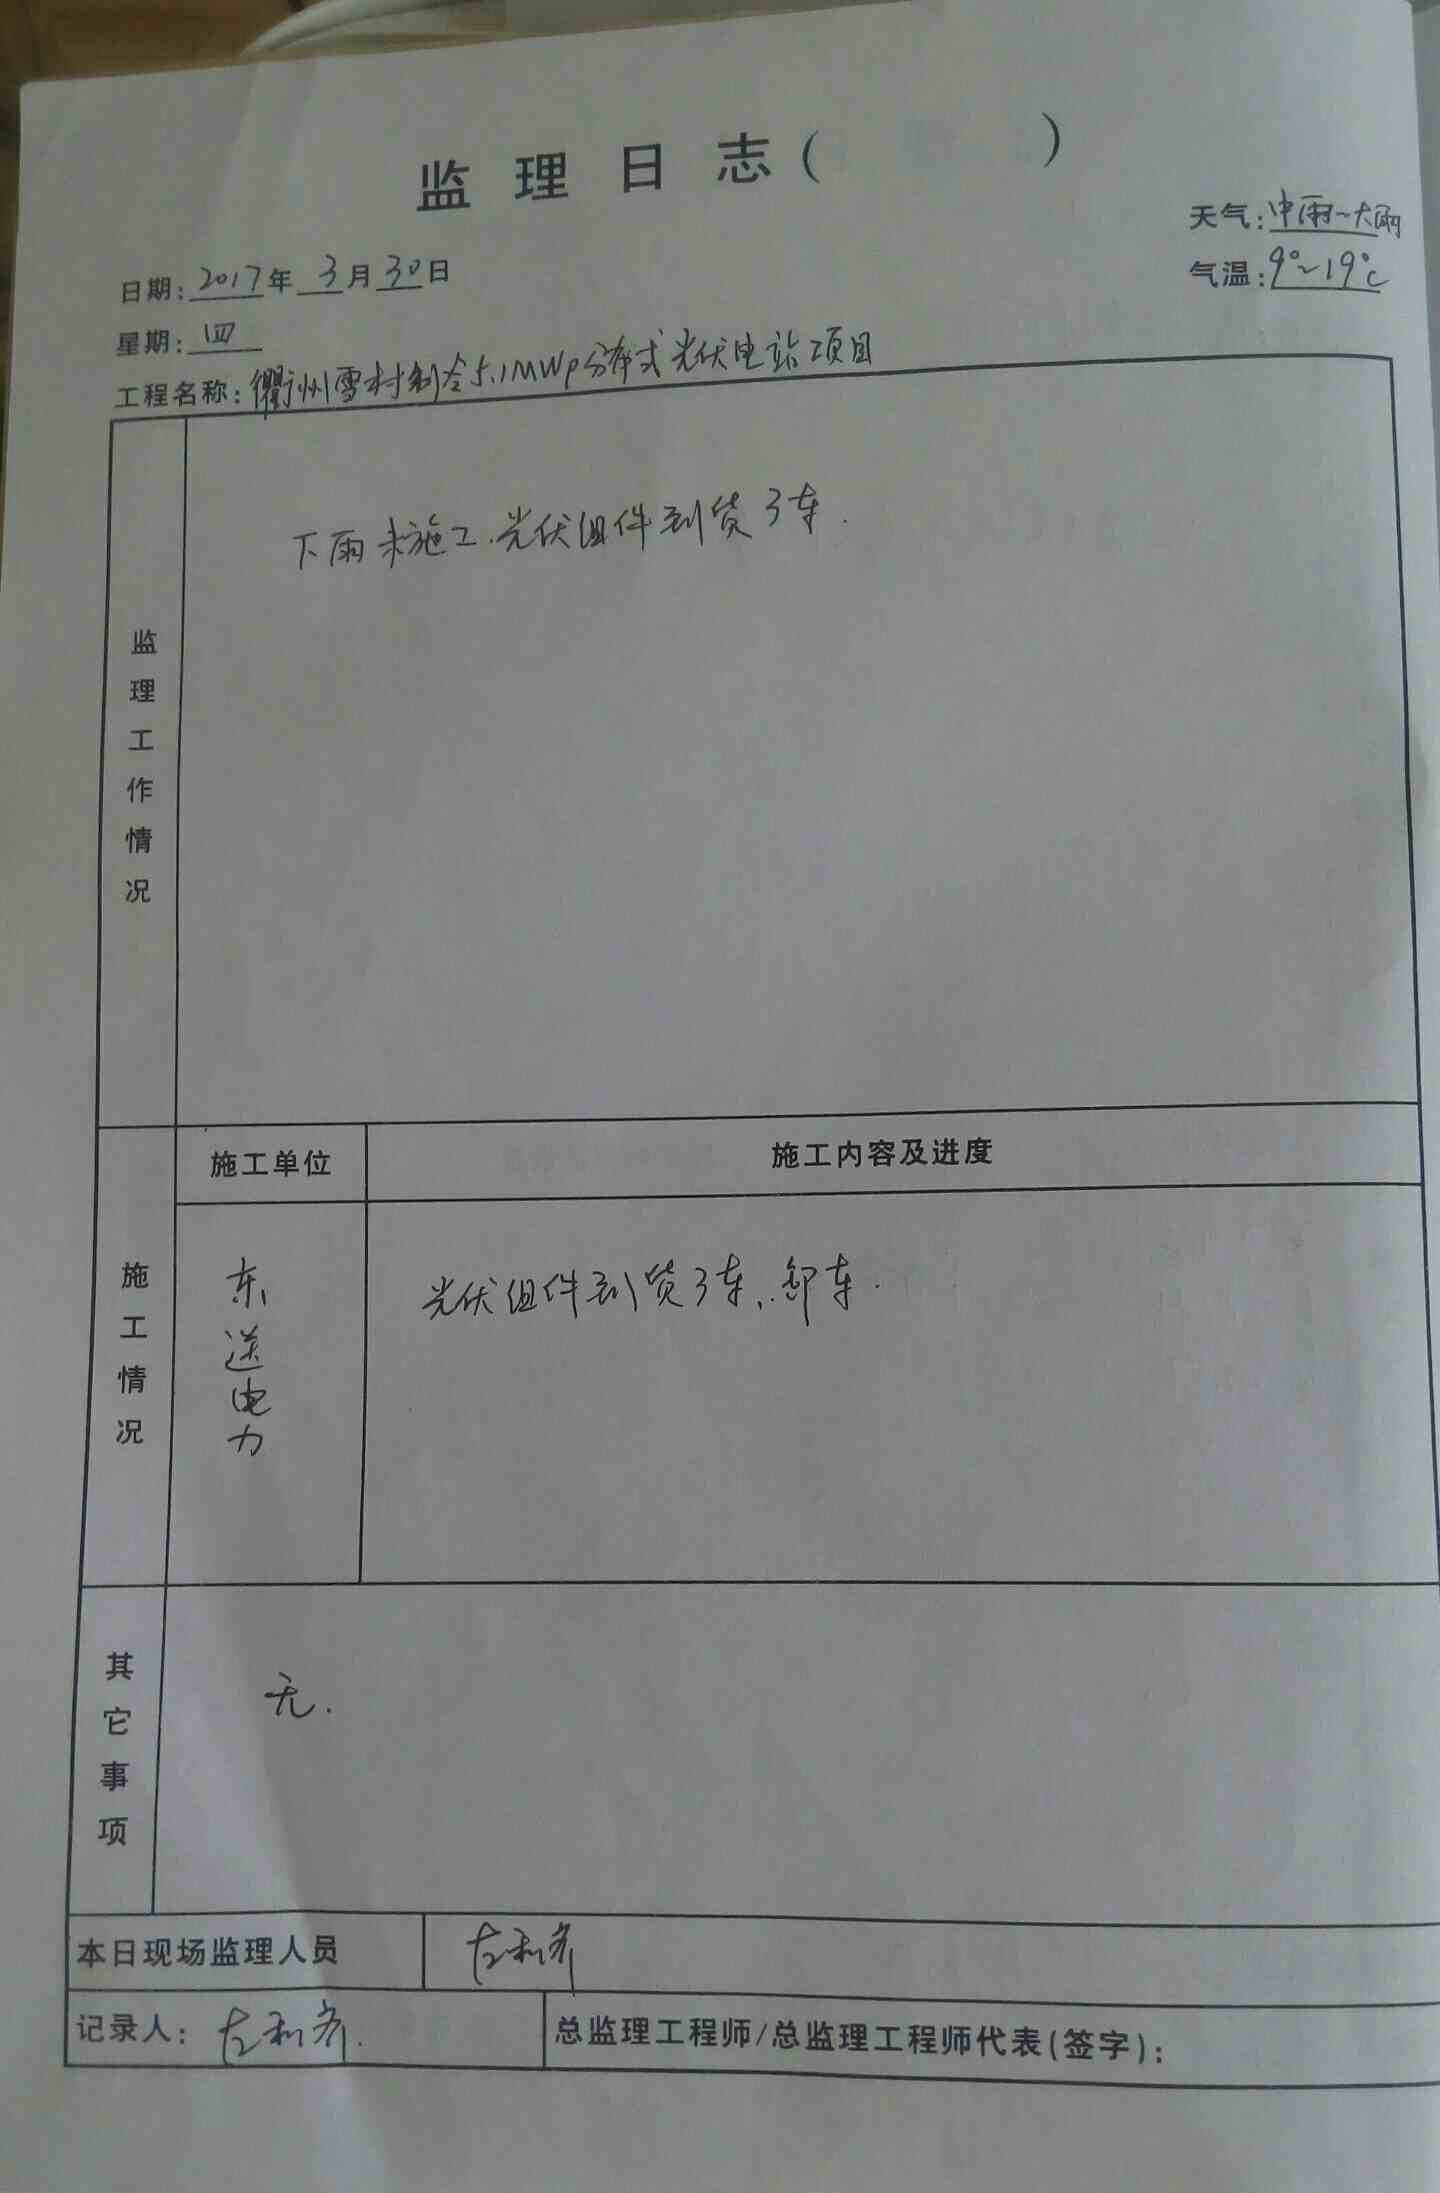 监理日志( )
天气:中雨~大雨
日期:2017年3月30日
气温:9°~19℃
星期:四
工程名称:衢州雪村制冷5.1MWp分布式光伏电站项目
监理工作情况
下雨未施工.光伏组件到货3车.
施工单位 施工内容及进度
施工情况
东送电力
光伏组件到货3车、卸车.
其它事项
无.
本日现场监理人员
记录人:
总监理工程师/总监理工程师代表(签字):